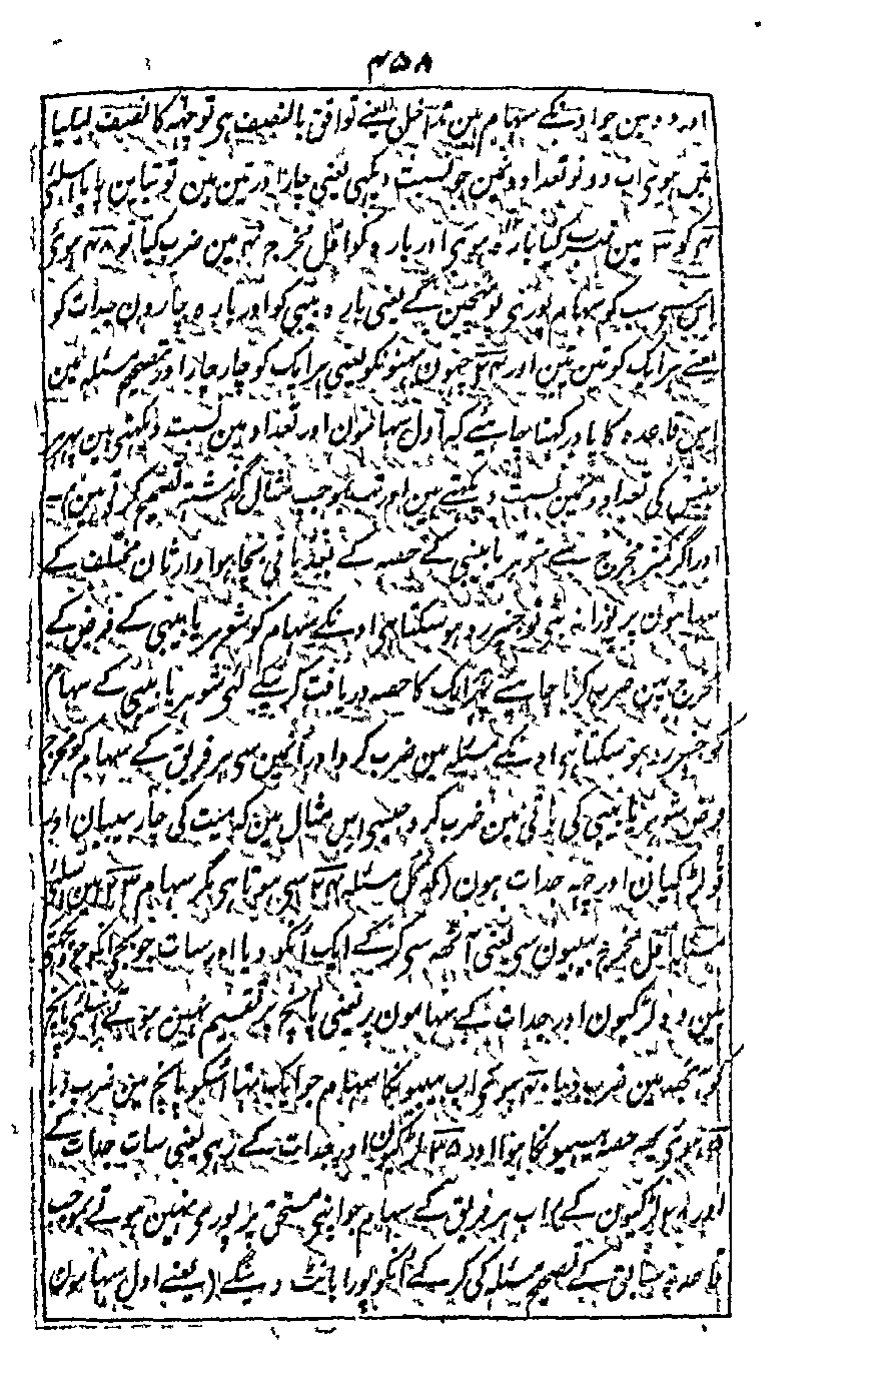 ۴۵۸
اور دو مین جو اونکے سہام مین تداخل یعنے توافق بالنصیف ہی تو چھہ کا نصیف لیلیا
تین ہوی اب دونو تعدادونمین جو نسبت دیکھی یعنی چار اور تین مین تو تباین پایا اسلئے
۴ کو ۳ مین ضرب کیا بارہ ہوی اور بارہ کو اقل مخرج ۴ مین ضرب کیا تو ۴۸ ہوی
اس سی سب کو سہام پوری پونہچین گے یعنی بارہ بیبی کو اور بارہ چارون جدات کو
یعنے ہر ایک کو تین تین اور ۲۴ چہون بہنونکو یعنی ہر ایک کو چار چار اور تصحیح مسئلہ مین
اس قاعدہ کا یاد رکہنا چاہئے کہ اول سہامون اور تعداد مین نسبت دیکھتی مین پہر ہر
جنس کی تعدادونمین نسبت دیکہتے مین اور تب بموجب مثال گذشتہ تصحیح کرتے مین
اور اگر کمتر مخرج سے شوہر یا بیبی کے حصہ کے بعد باقی بچا ہوا وارثان مختلف کے
سہامون پر پورا نہ بٹی تو جنپر رد ہو سکتا ہی اونکے سہام کو شوہر یا بیبی کے فرض کے
مخرج مین ضرب کرنا چاہئے ہر ایک کا حصہ دریافت کرنیکے لئی شوہر یا بیبی کے سہام
کو جنپر رد ہو سکتا ہی اونکے مسئلہ مین ضرب کرو اور انمین سی ہر فریق کے سہام کو مخرج
فرض شوہر یا بیبی کی باقی مین ضرب کرو جیسی اس مثال مین کہ میت کی چار بیبیان اور
نو لڑکیان اور چہہ جدات ہون (کہ کل مسئلہ ۲۴ سی ہوتا ہی مگر سہام ۲۳ مین اسلئے
مسئلہ اقل مخرج بیبیون سی یعنی آٹھہ سی کرکے ایک انکو دیا اور سات جو بچی انکو جو دیکہتے
مین تو لڑکیون اور جدات کے سہامون پر یعنی پانچ پر تقسیم نہین ہوتے اسلئے پانچ
کو آٹھہ مین ضرب دیا ۴۰ ہوئی اب بیبیونکا سہام جو ایک تہا اسکو پانچ مین ضرب دیا
۵ ہوئی یہہ حصہ بیبیونکا ہوا اور ۳۵ لڑکیون اور جدات کے رہی یعنی سات جدات کے
اور ۲۸ لڑکیون کے) اب ہر فریق کے سہام جو اپنی مستحق پر پوری نہین ہوتے بموجب
قاعدہ سابق کے تصحیح مسئلہ کی کرکے انکو پورا بانٹ دینگے (یعنے اول سہامون